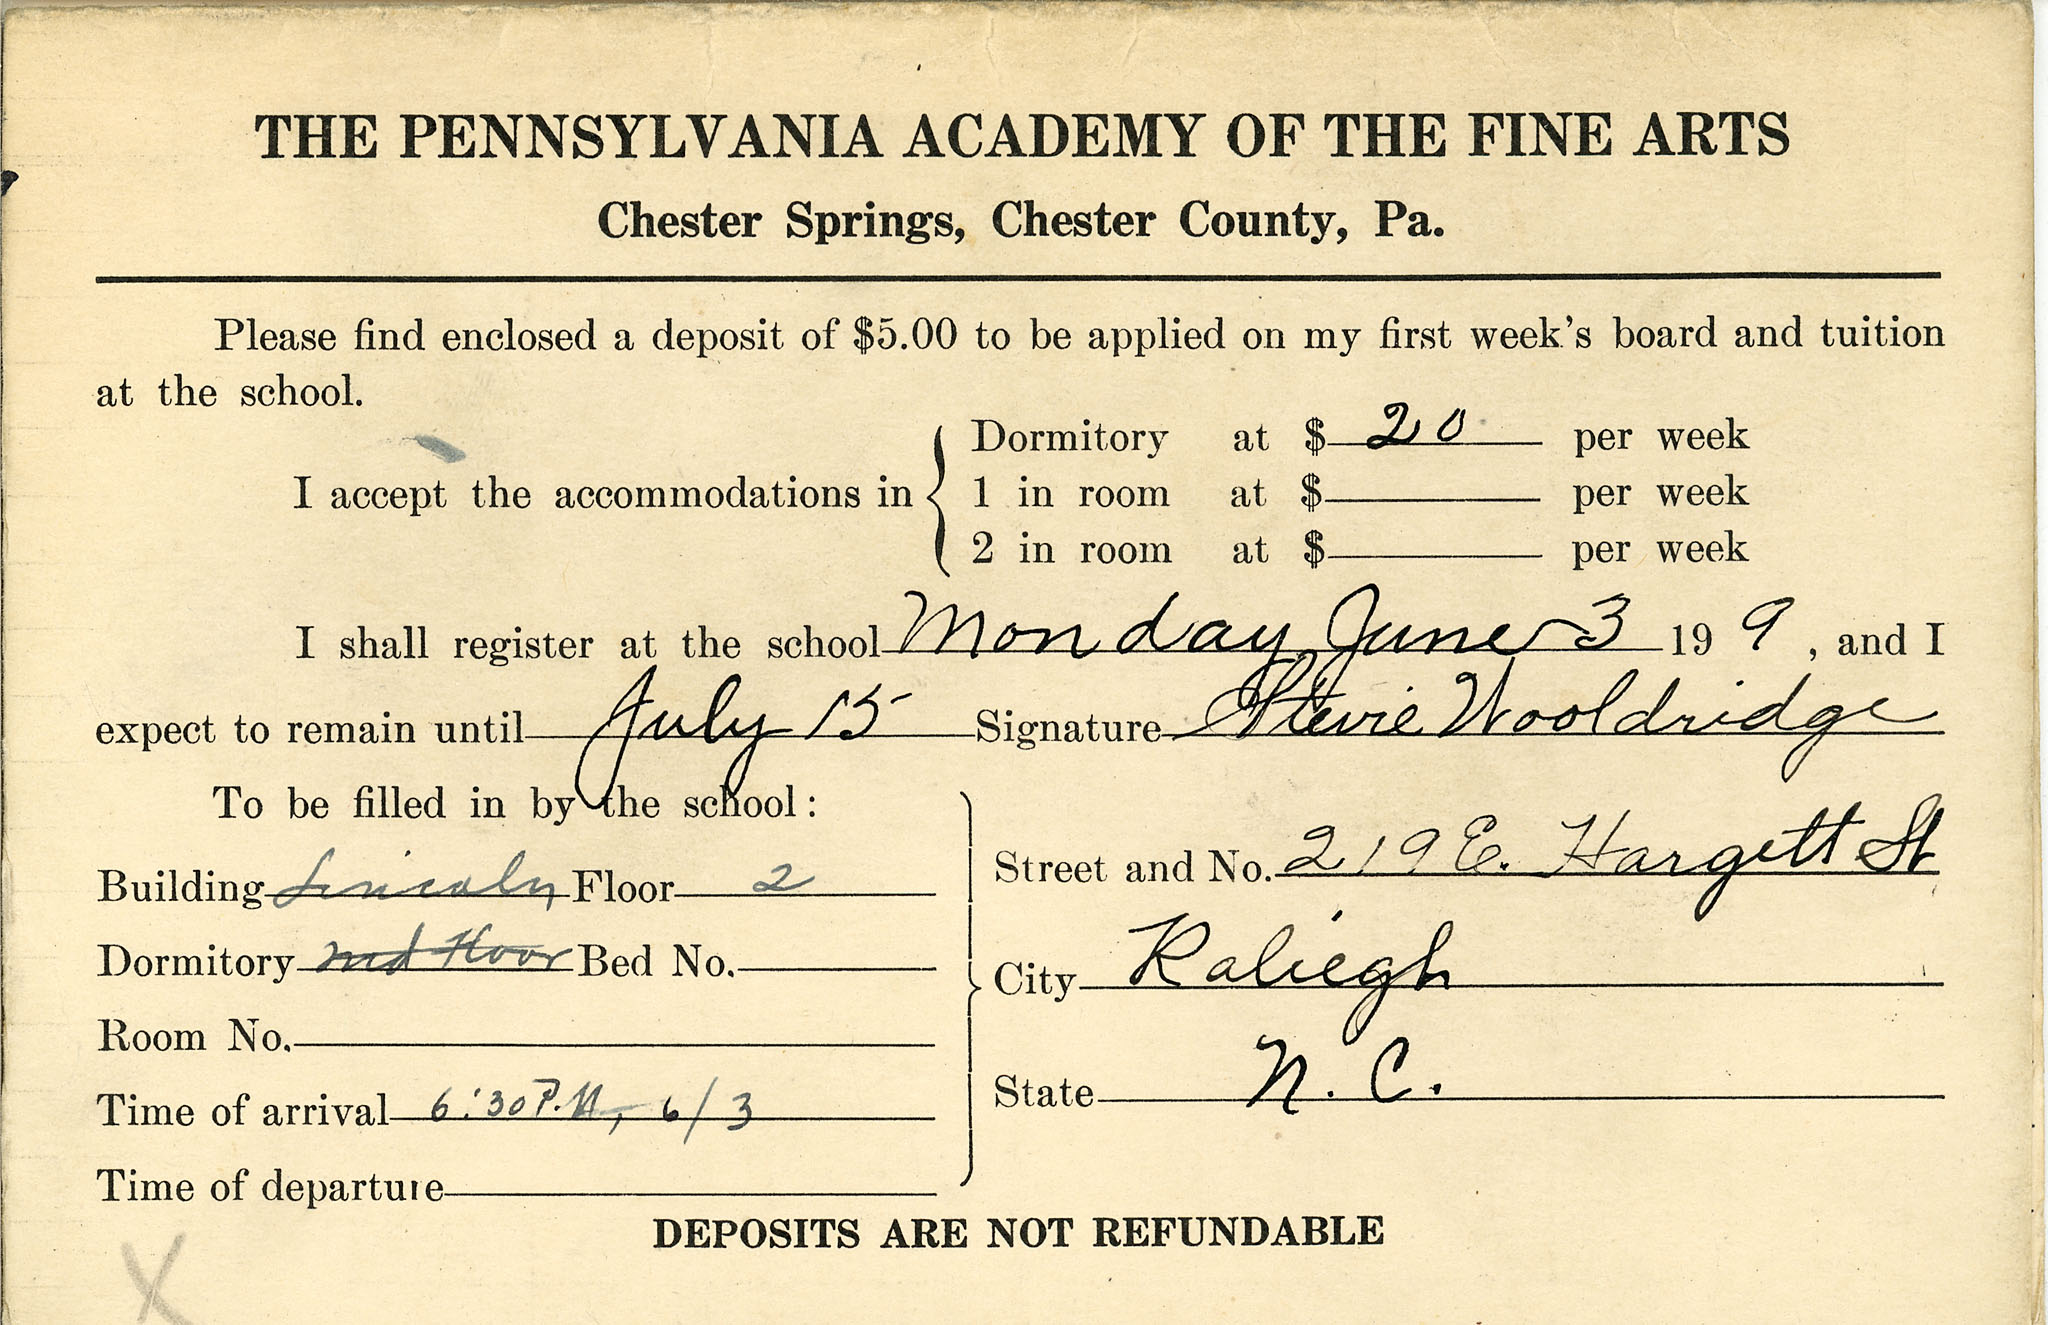 THE PENNSYLVANIA ACADEMY OF THE FINE ARTS
Chester Springs, Chester County, Pa.
Please find enclosed a deposit of $5.00 to be applied on my first week's board and tuition
at the school.
I accept the accommodations in
Dormitory at $ 20 per week
1 in room at $ per week
2 in room at $ per week
I shall register at the school Monday June 3 19 9, and I
expect to remain until July 15 Signature Stevie Wooldridge
To be filled in by the school:
Building Lincoln Floor 2
Dormitory Bed No.
Room No.
Time of arrival 6:30 P.M., 6/3
Time of departure
Street and No. 219 E. Hargett St
City Raliegh
State N.C.
DEPOSITS ARE NOT REFUNDABLE
X